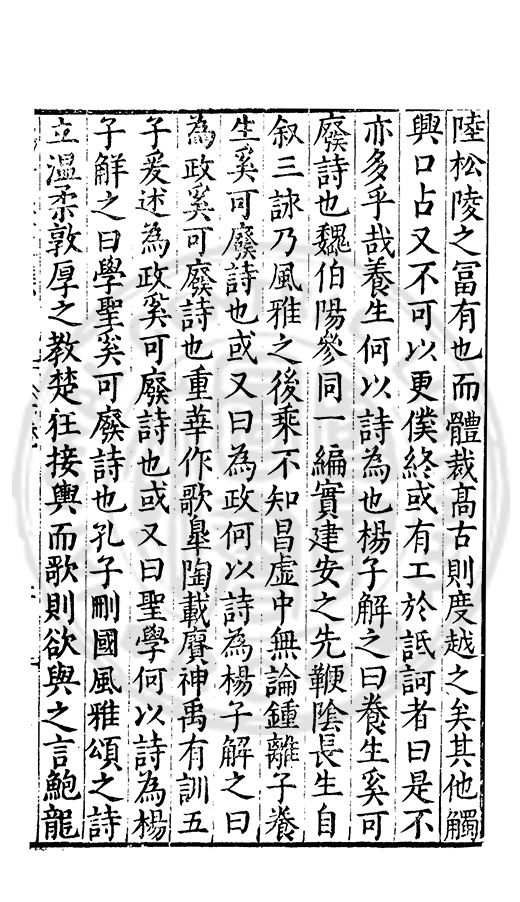 陸松陵之富有也而體裁髙古則度越之矣其他觸
興口占又不可以更僕終或有工於詆訶者曰是不
亦多乎哉養生何以詩為也楊子解之曰養生奚可
廢詩也魏伯陽參同一編實建安之先鞭陰長生自
叙三詠乃風雅之後乘不知昌虛中無論鍾離子養
生奚可廢詩也或又曰為政何以詩為楊子解之曰
為政奚可廢詩也重華作歌臯陶載賡神禹有訓五
子爰述為政奚可廢詩也或又曰聖學何以詩為楊
子解之曰學聖奚可廢詩也孔子刪國風雅頌之詩
立溫柔敦厚之教楚狂接輿而歌則欲與之言鮑龍